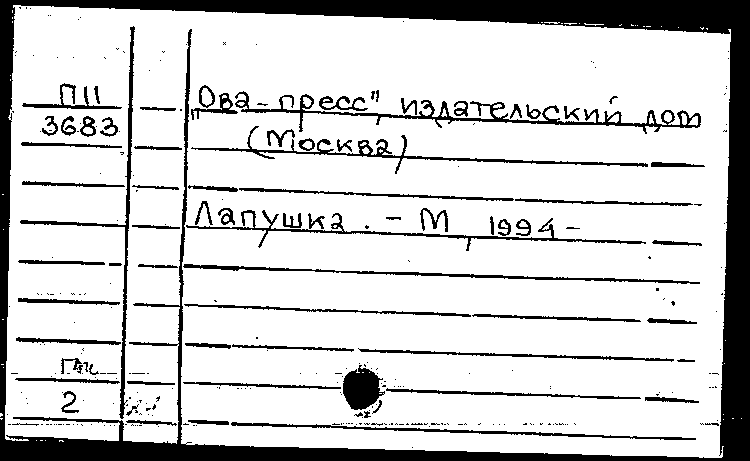 П11
3683
"Ова-пресс", издательский дом
(Москва)
Лапушка. - М, 1994-
2